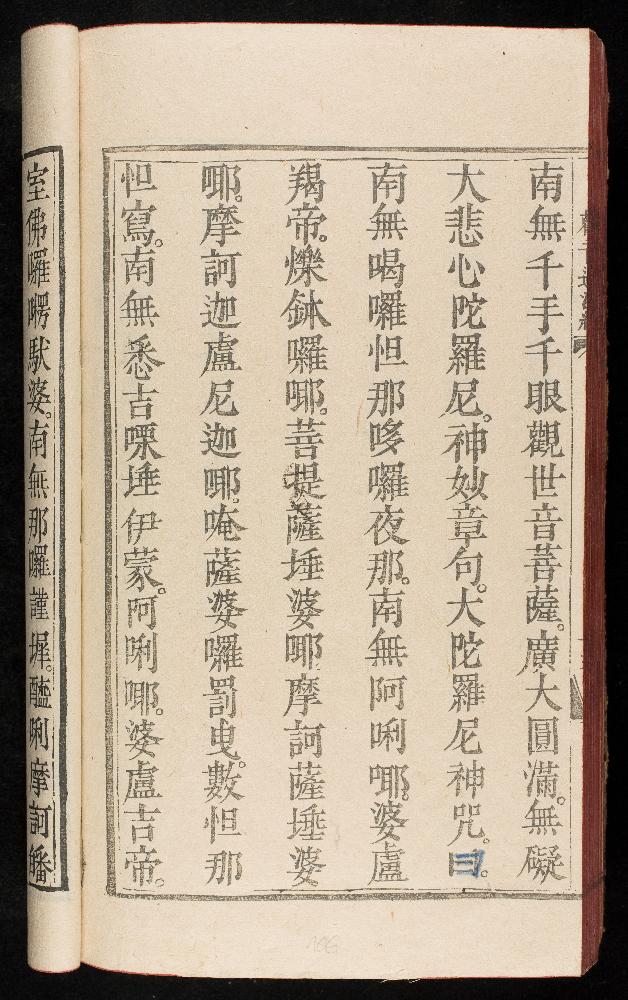 南無千手千眼觀世音菩薩。廣大圓滿。無礙
大悲心陀羅尼。神妙章句。大陀羅尼神咒。曰。
南無喝囉怛那哆囉夜那。南無阿唎㖿。婆盧
羯帝。爍鉢囉㖿。菩提薩埵婆㖿摩訶薩埵婆
㖿。摩訶迦盧尼迦㖿。唵薩婆囉罰曳。數怛那
怛寫。南無悉吉㗚埵伊蒙。阿唎㖿。婆盧吉帝。
室佛囉㘋馱婆。南無那囉謹墀。醯唎摩訶皤
106